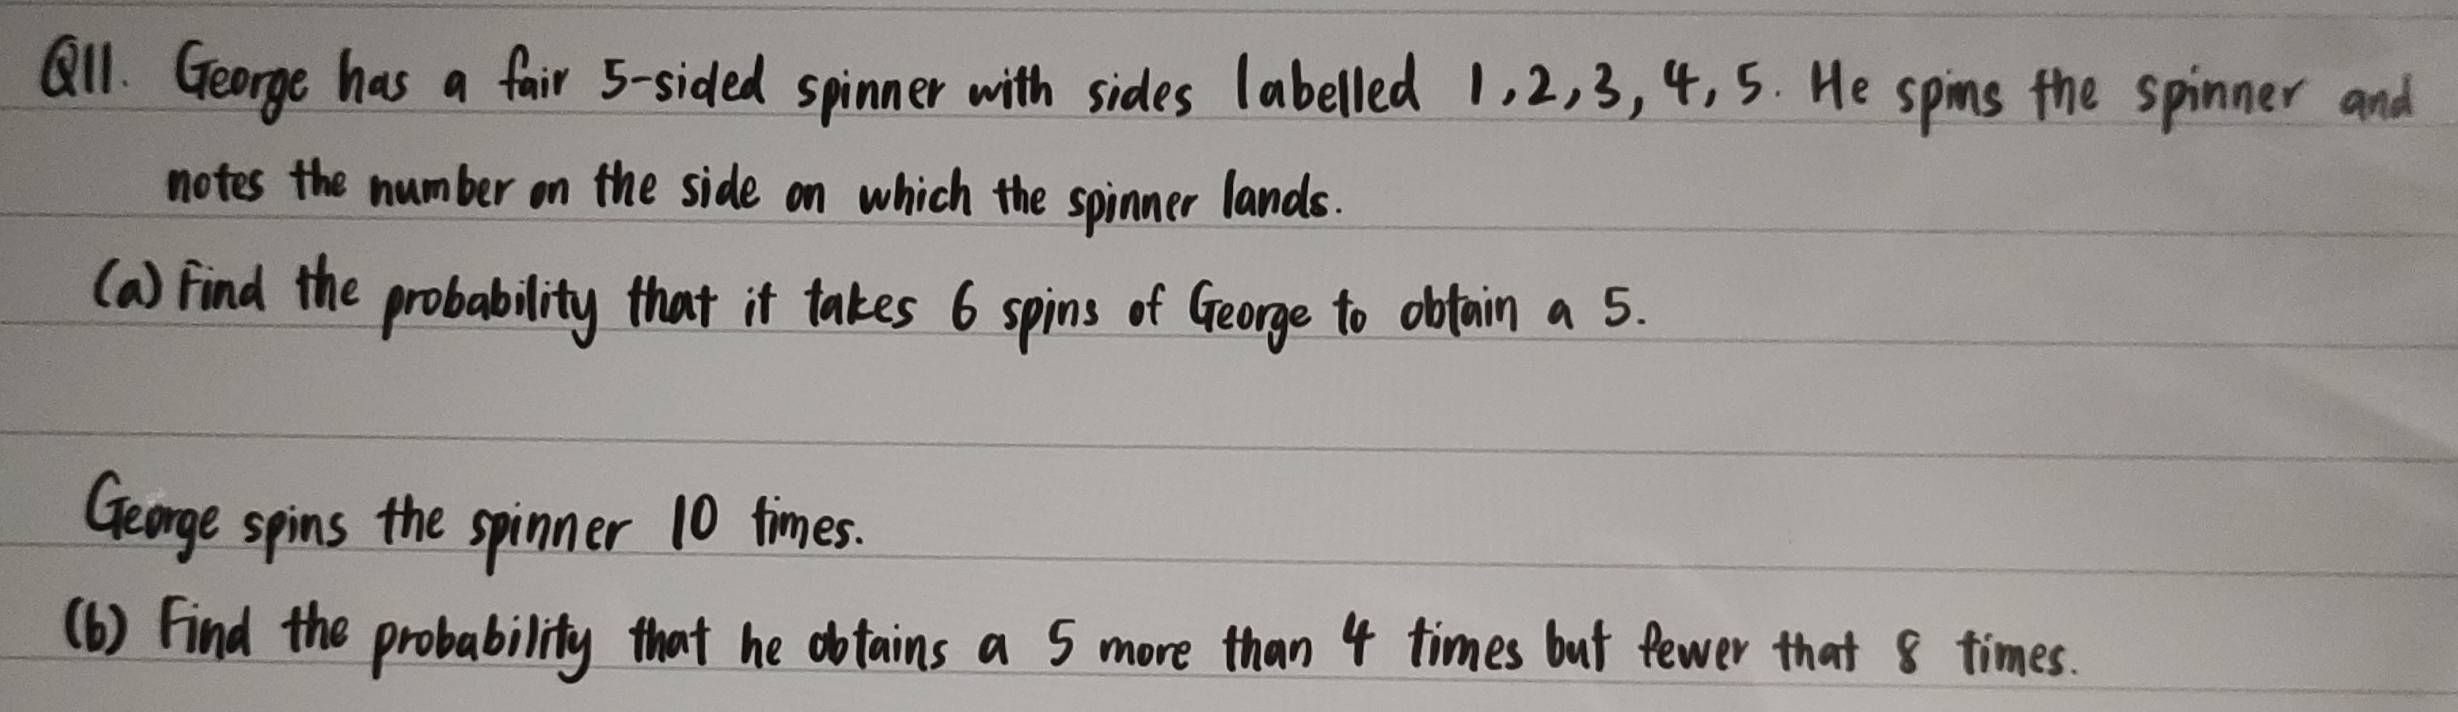 Q11. George has a fair 5-sided spinner with sides labelled 1,2,3,4,5. He spins the spinner and
notes the number on the side on which the spinner lands.
(a) Find the probability that it takes 6 spins of George to obtain a 5.
George spins the spinner 10 times.
(b) Find the probability that he obtains a 5 more than 4 times but fewer that 8 times.